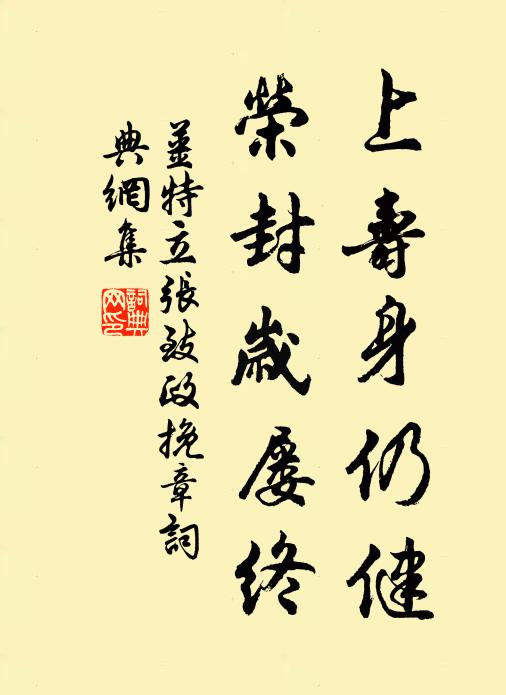 上壽身仍健
榮封歲屢終
姜特立張致政挽章詞
典網集
詞典
網印